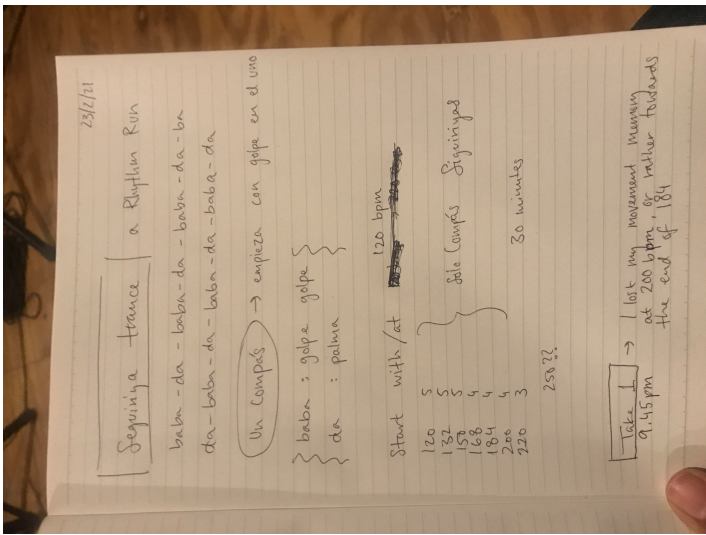 23/2/21
Seguiriya trance / a Rhythm Run
baba - da - baba - da - baba - da - baba - da - ba
da - baba - da - baba - da - baba - da
Un Compás → empieza con golpe en el uno
baba : golpe golpe
da : palma
Start with/at 120 bpm
120 5
132 5
150 5
168 4
184 4
200 4
220 3
Solo Compás Siguiriyas
30 minutes
250??
Take 1 → I lost my movement memory
9.45pm at 200 bpm, or rather towards
the end of 184